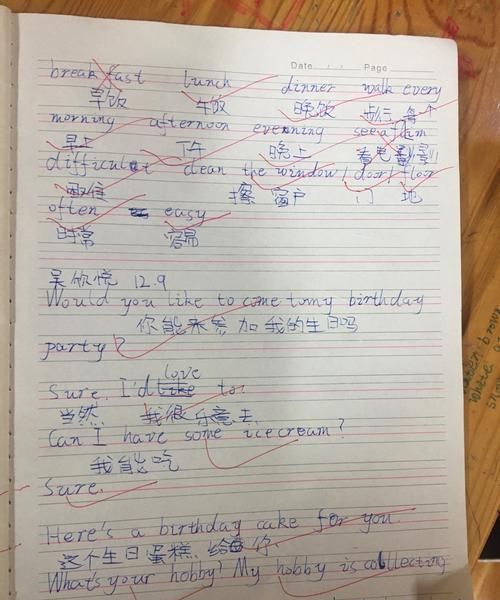 Date / / Page
breakfast lunch dinner walk every
早饭 午饭 晚饭 步行 每个
morning afternoon evenning see a film
早上 下午 晚上 看电影
difficulat clean the window / door / floor
困难 擦 窗户 门 地
often easy
时常 容易
吴欣悦 12.9
Would you like to come to my birthday
你能来参加我的生日吗
party?
love
Sure. I'd like to.
当然 我很乐意去
Can I have some icecream?
我能吃
Sure.
Here's a birthday cake for you.
这个生日蛋糕给你
What's your hobby? My hobby is collecting